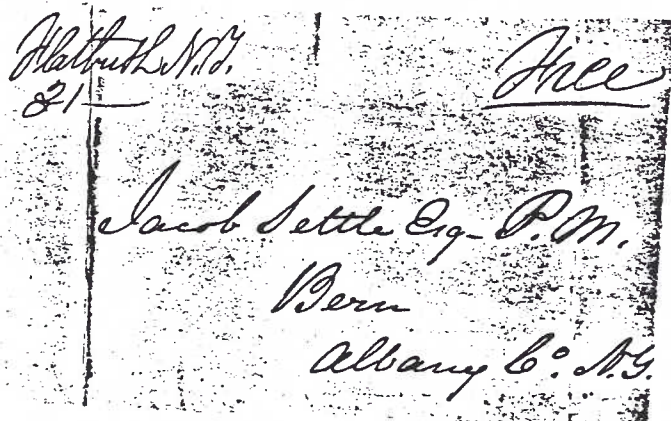 Flatbush N.Y.
21
Free
Jacob Settle Esq- P.M.
Bern
Albany Co. N.Y.